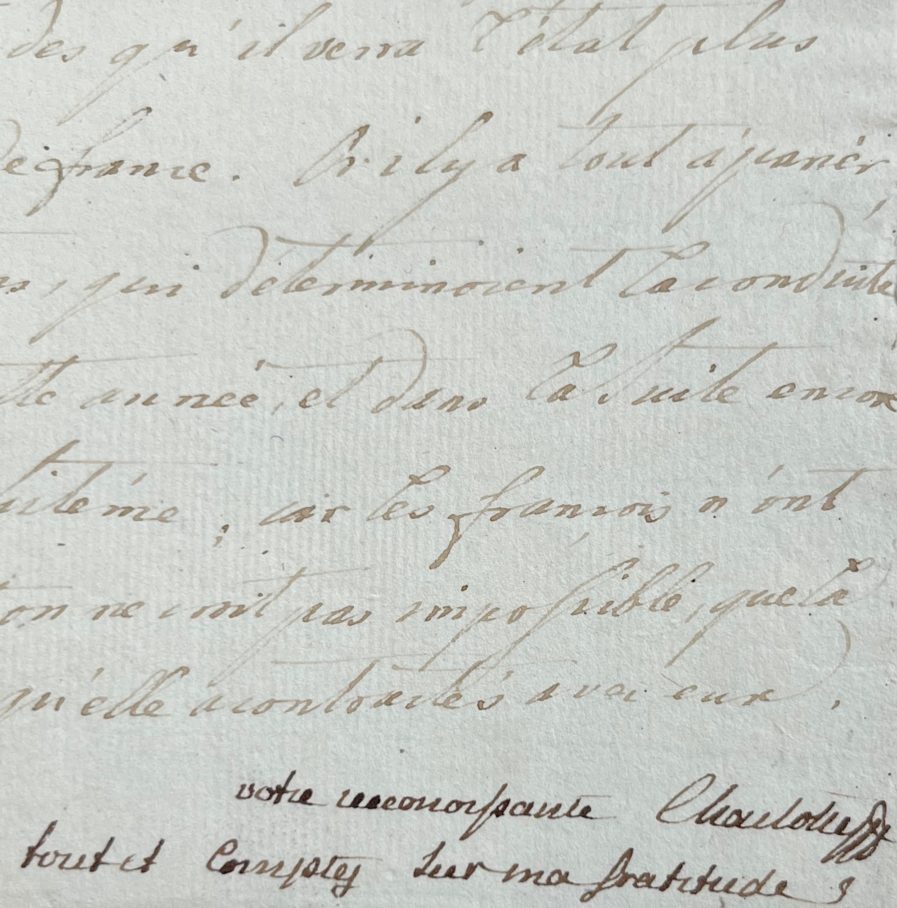 des qu'il verra l'état plus
de france. Or il y a tout à parièr
qui determinoient la conduite
année, et dans la Suite encore
car les francois n'ont
on ne croit pas impossible, que la
qu'elle a contractés avec eux.
votre reconoissante Charlotte
tout et Comptez sur ma gratitude